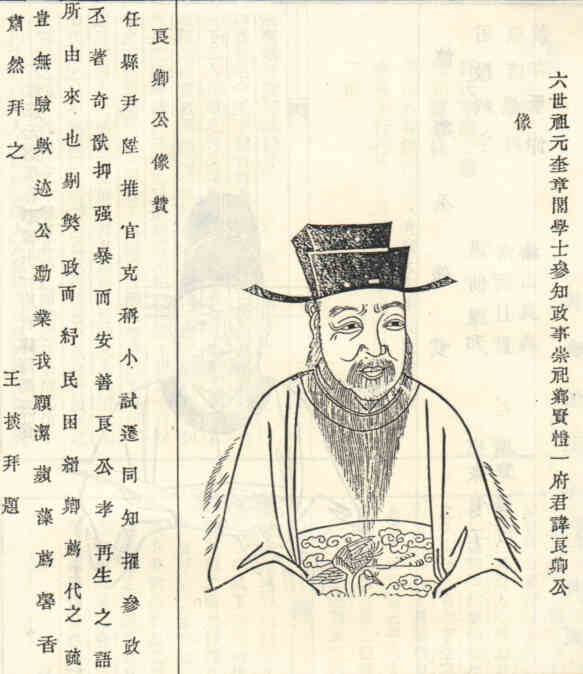 六世祖元奎章閣學士參知政事崇祀鄉賢愷一府君諱良卿公
像
良卿公像贊
任縣尹陞推官克稱小試遷同知擢參政
丕著奇猷抑强暴而安善良公孝再生之語
所由來也剔獘政而紓民困紹卿薦代之疏
豈無驗歟迹公勳業我願潔蘋藻薦馨香
肅然拜之 王拔拜題